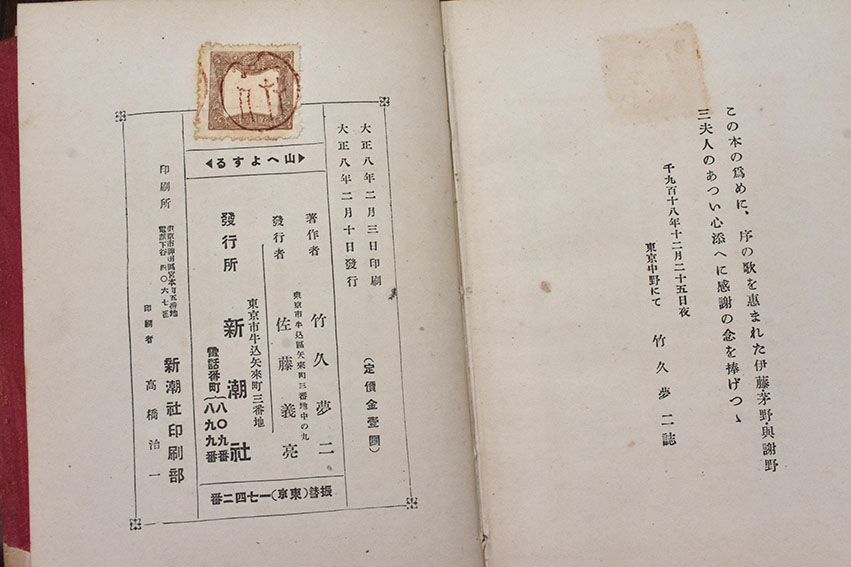 この本の爲めに、序の歌を惠まれた伊藤茅野・與謝野
三夫人のあつい心添へに感謝の念を捧げつゝ
千九百十八年十二月二十五日夜
東京中野にて　竹久夢二誌
大正八年二月三日印刷
大正八年二月十日發行
（定價金壹圓）
著作者　竹久夢二
東京市牛込區矢來町三番地中の丸
發行者　佐藤義亮
東京市牛込矢來町三番地
發行所　新潮社
電話番町　八〇九番
八九九番
山へよする
振替（東京）一七四二番
印刷所　新潮社印刷部
電話下谷　四〇六七番
印刷者　高橋治一